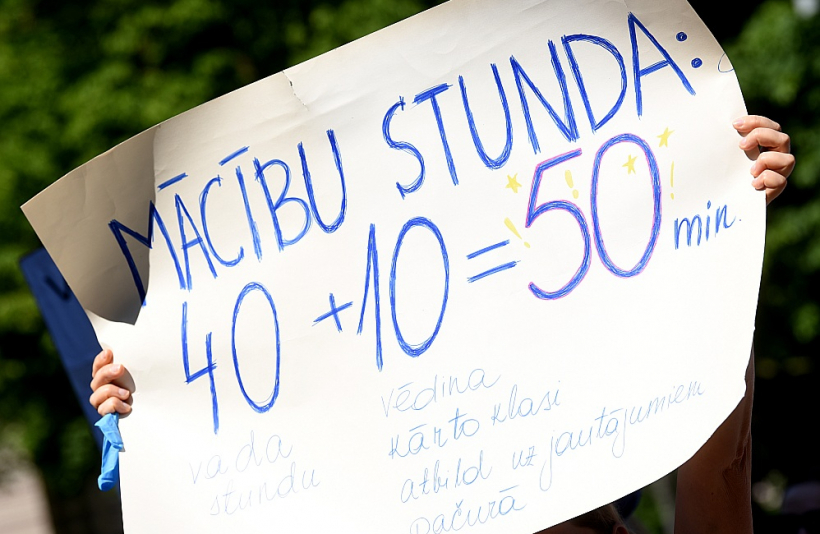 MĀCĪBU STUNDA:
40 + 10 = 50 min.
vada
stundu
vēdina
kārto klasi
atbild uz jautājumiem
pačurā